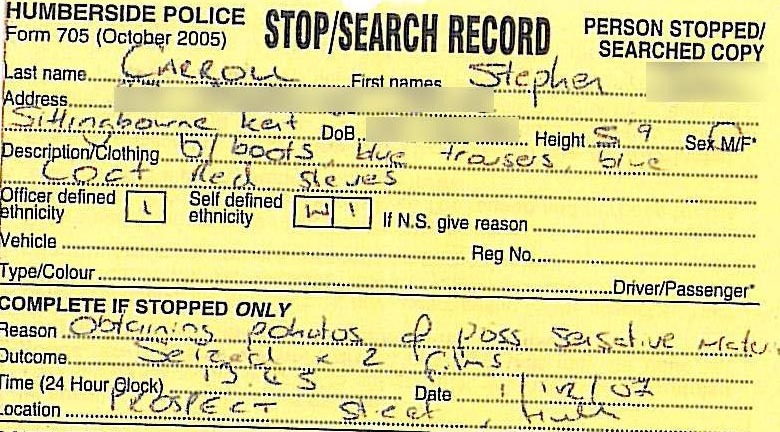 HUMBERSIDE POLICE
Form 705 (October 2005)
STOP/SEARCH RECORD
PERSON STOPPED/
SEARCHED COPY
Last name CARROLL First names Stephen
Address
Sittingbourne kent DoB Height 5 9 Sex M/F*
Description/Clothing b/ boots, blue trousers, blue
Coat Red sleves
Officer defined ethnicity 1 Self defined ethnicity W 1 If N.S. give reason
Vehicle Reg No.
Type/Colour Driver/Passenger*
COMPLETE IF STOPPED ONLY
Reason Obtaining pohutos of poss sensative
Outcome Seized x 2 films
Time (24 Hour Clock) Date 1/12/07
Location PROSPECT Street, Hull